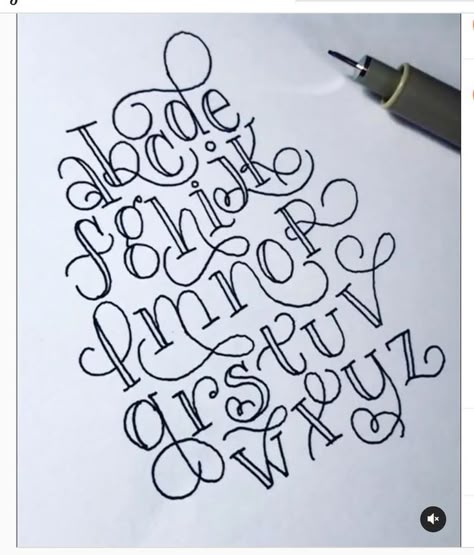 abcde
fghijk
lmnop
qrstuv
wxyz